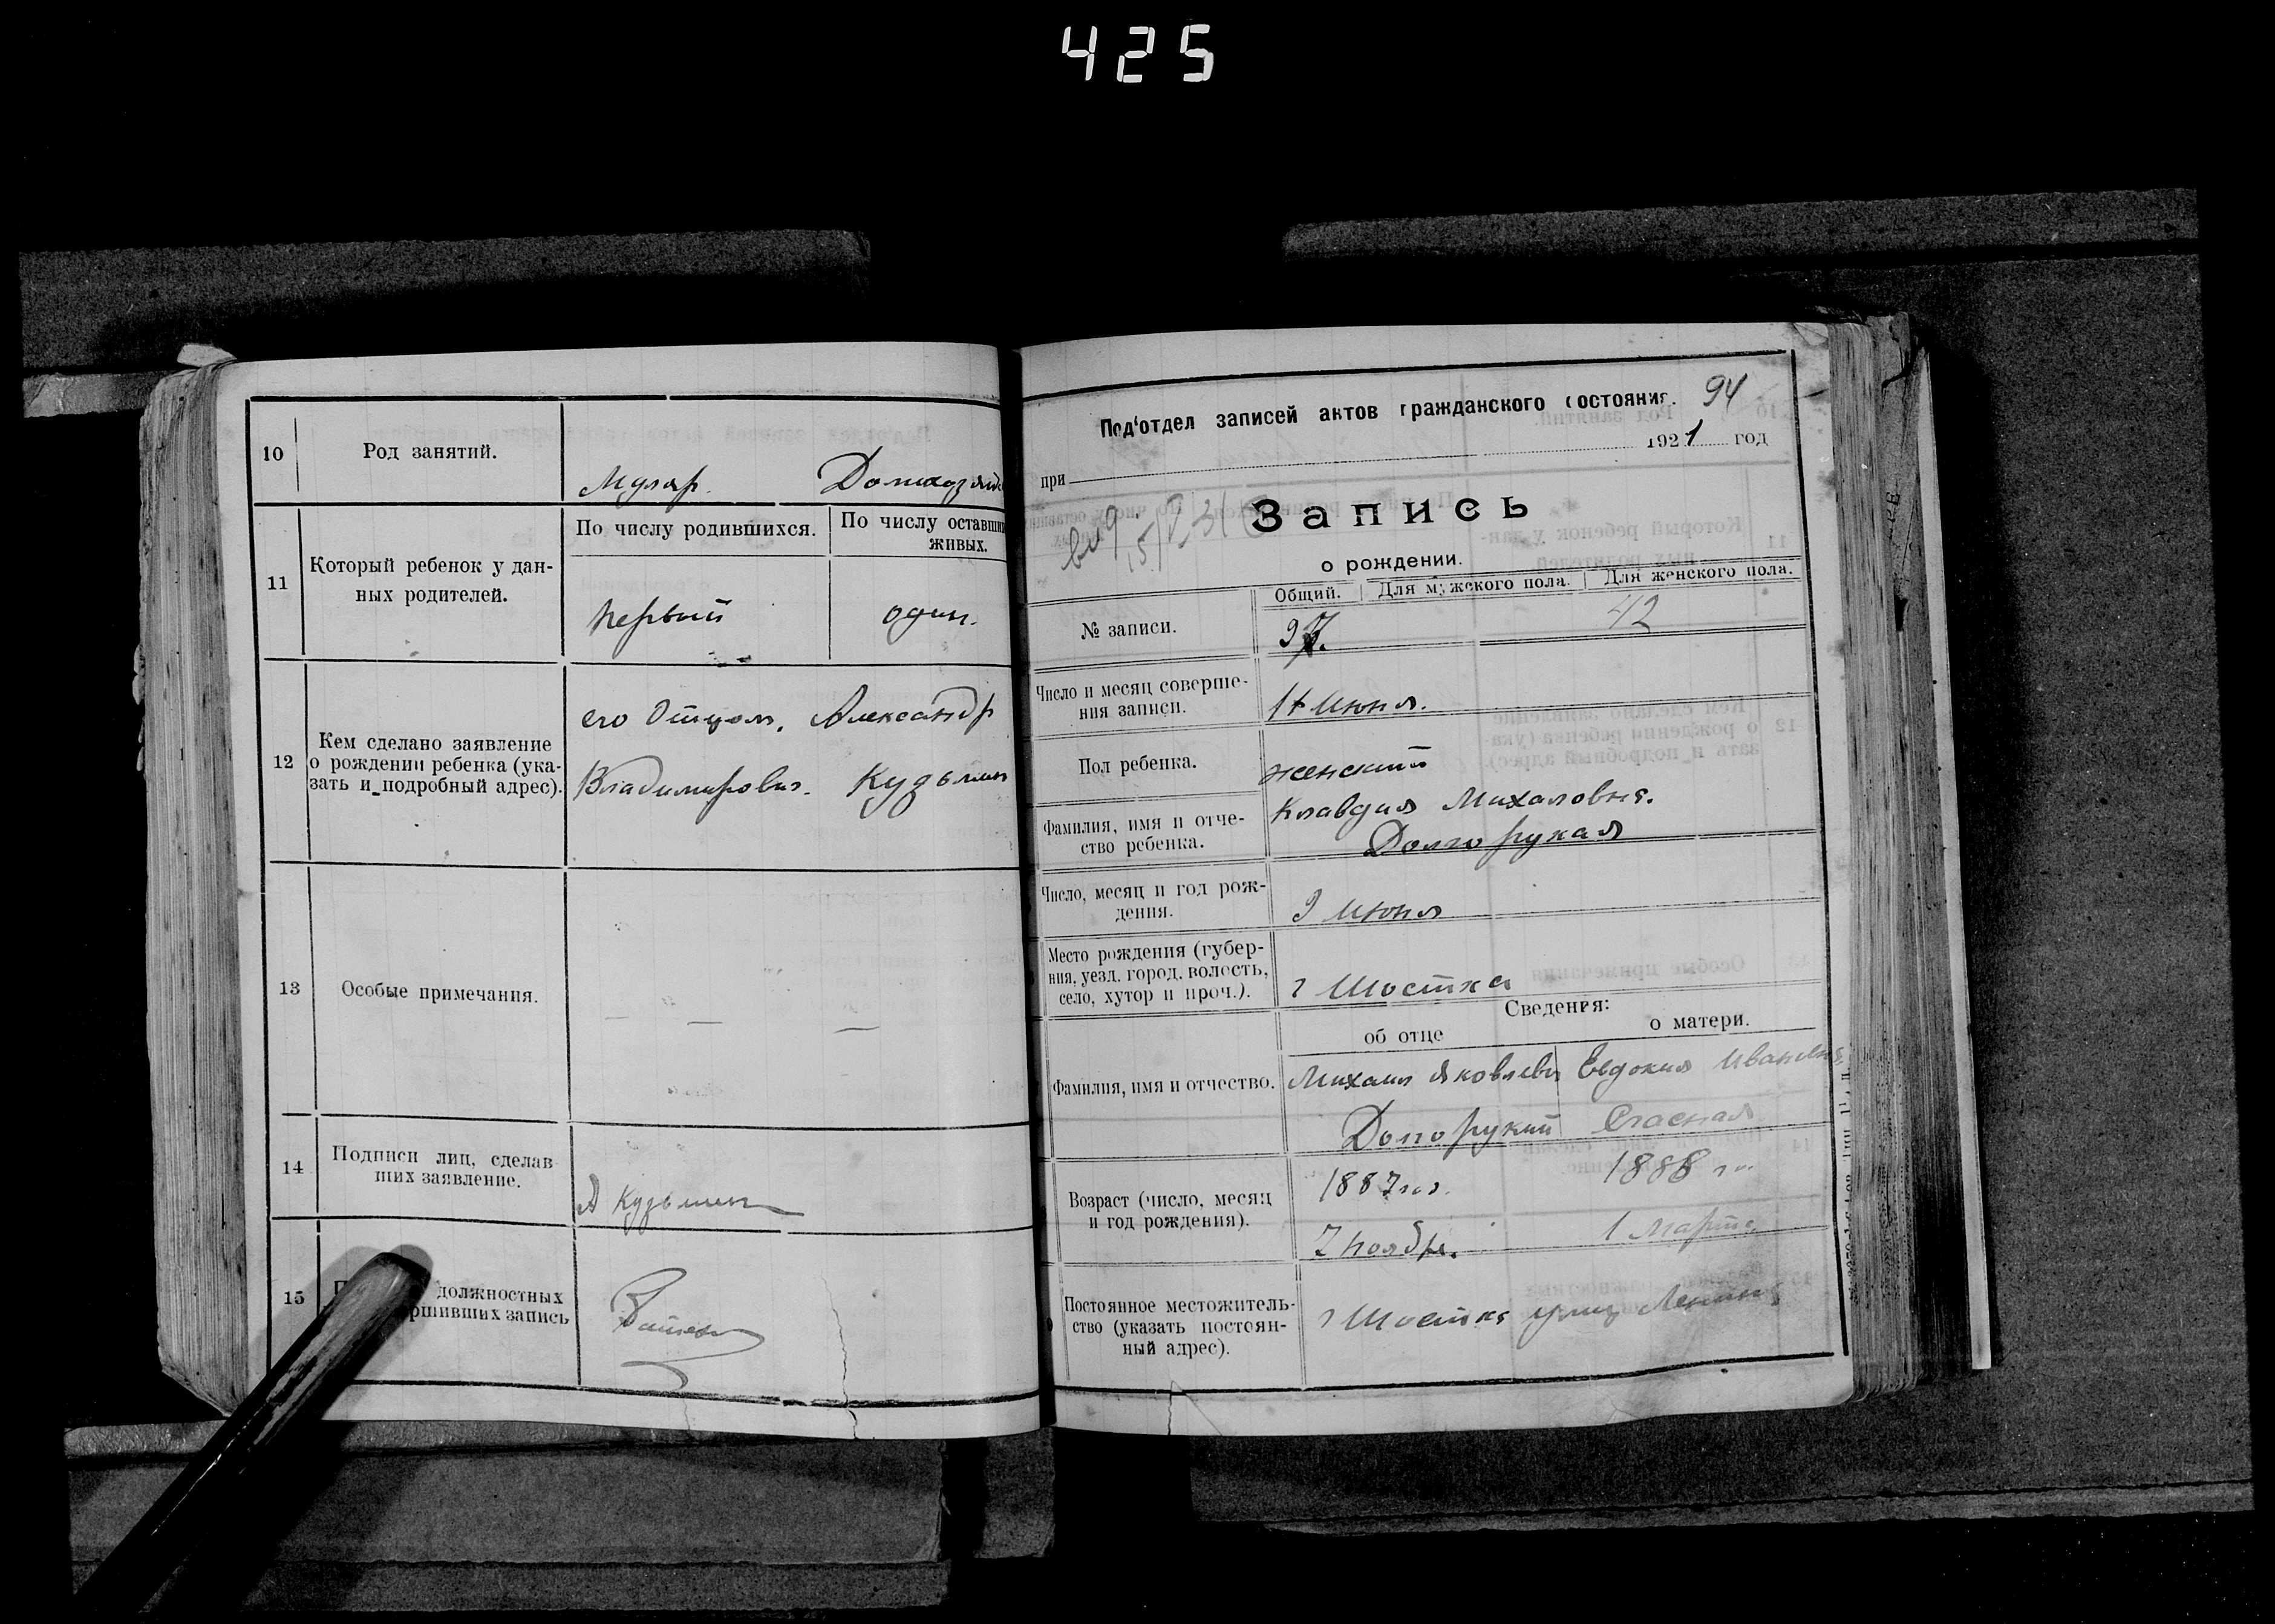 425
10
Род занятий.
Муляр. Домохозяй
11
Который ребенок у дан-
ных родителей.
По числу родившихся.
По числу оставши
живых.
первый
один.
12
Кем сделано заявление
о рождении ребенка (ука-
зать и подробный адрес).
его Отцом, Александр
Владимирович. Кудьмин
13
Особые примечания.
— — —
14
Подписи лиц, сделав
ших заявление.
А Кудьмин
15
должностных
ршивших запись
Под'отдел записей актов гражданского состояния.
94
при
1921 год
Запись
о рождении.
Общий.
Для мужского пола.
Для женского пола.
№ записи.
97.
42
Число и месяц соверше-
ния записи.
Июня.
Пол ребенка.
женский
Фамилия, имя и отче-
ство ребенка.
Клавдия Михаловна.
Долгорукая
Число, месяц и год рож-
дения.
9 Июня
Место рождения (губер-
ния, уезд, город, волость,
село, хутор и проч.).
г Шостка
Сведения:
об отце
о матери.
Фамилия, имя и отчество.
Михаил Яковлевич
Долгорукий
Евдокия Ивановна
Возраст (число, месяц
и год рождения).
1887 го.
7 Ноября.
1888 го
1 Марта
Постоянное местожитель-
ство (указать постоян-
ный адрес).
г Шостка улиц Ленина